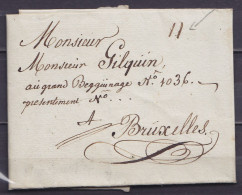 11
Monsieur
Monsieur Gilquin,
au grand Begguinage No. 4036.
presentiment No. . . .
A
Bruxelles.